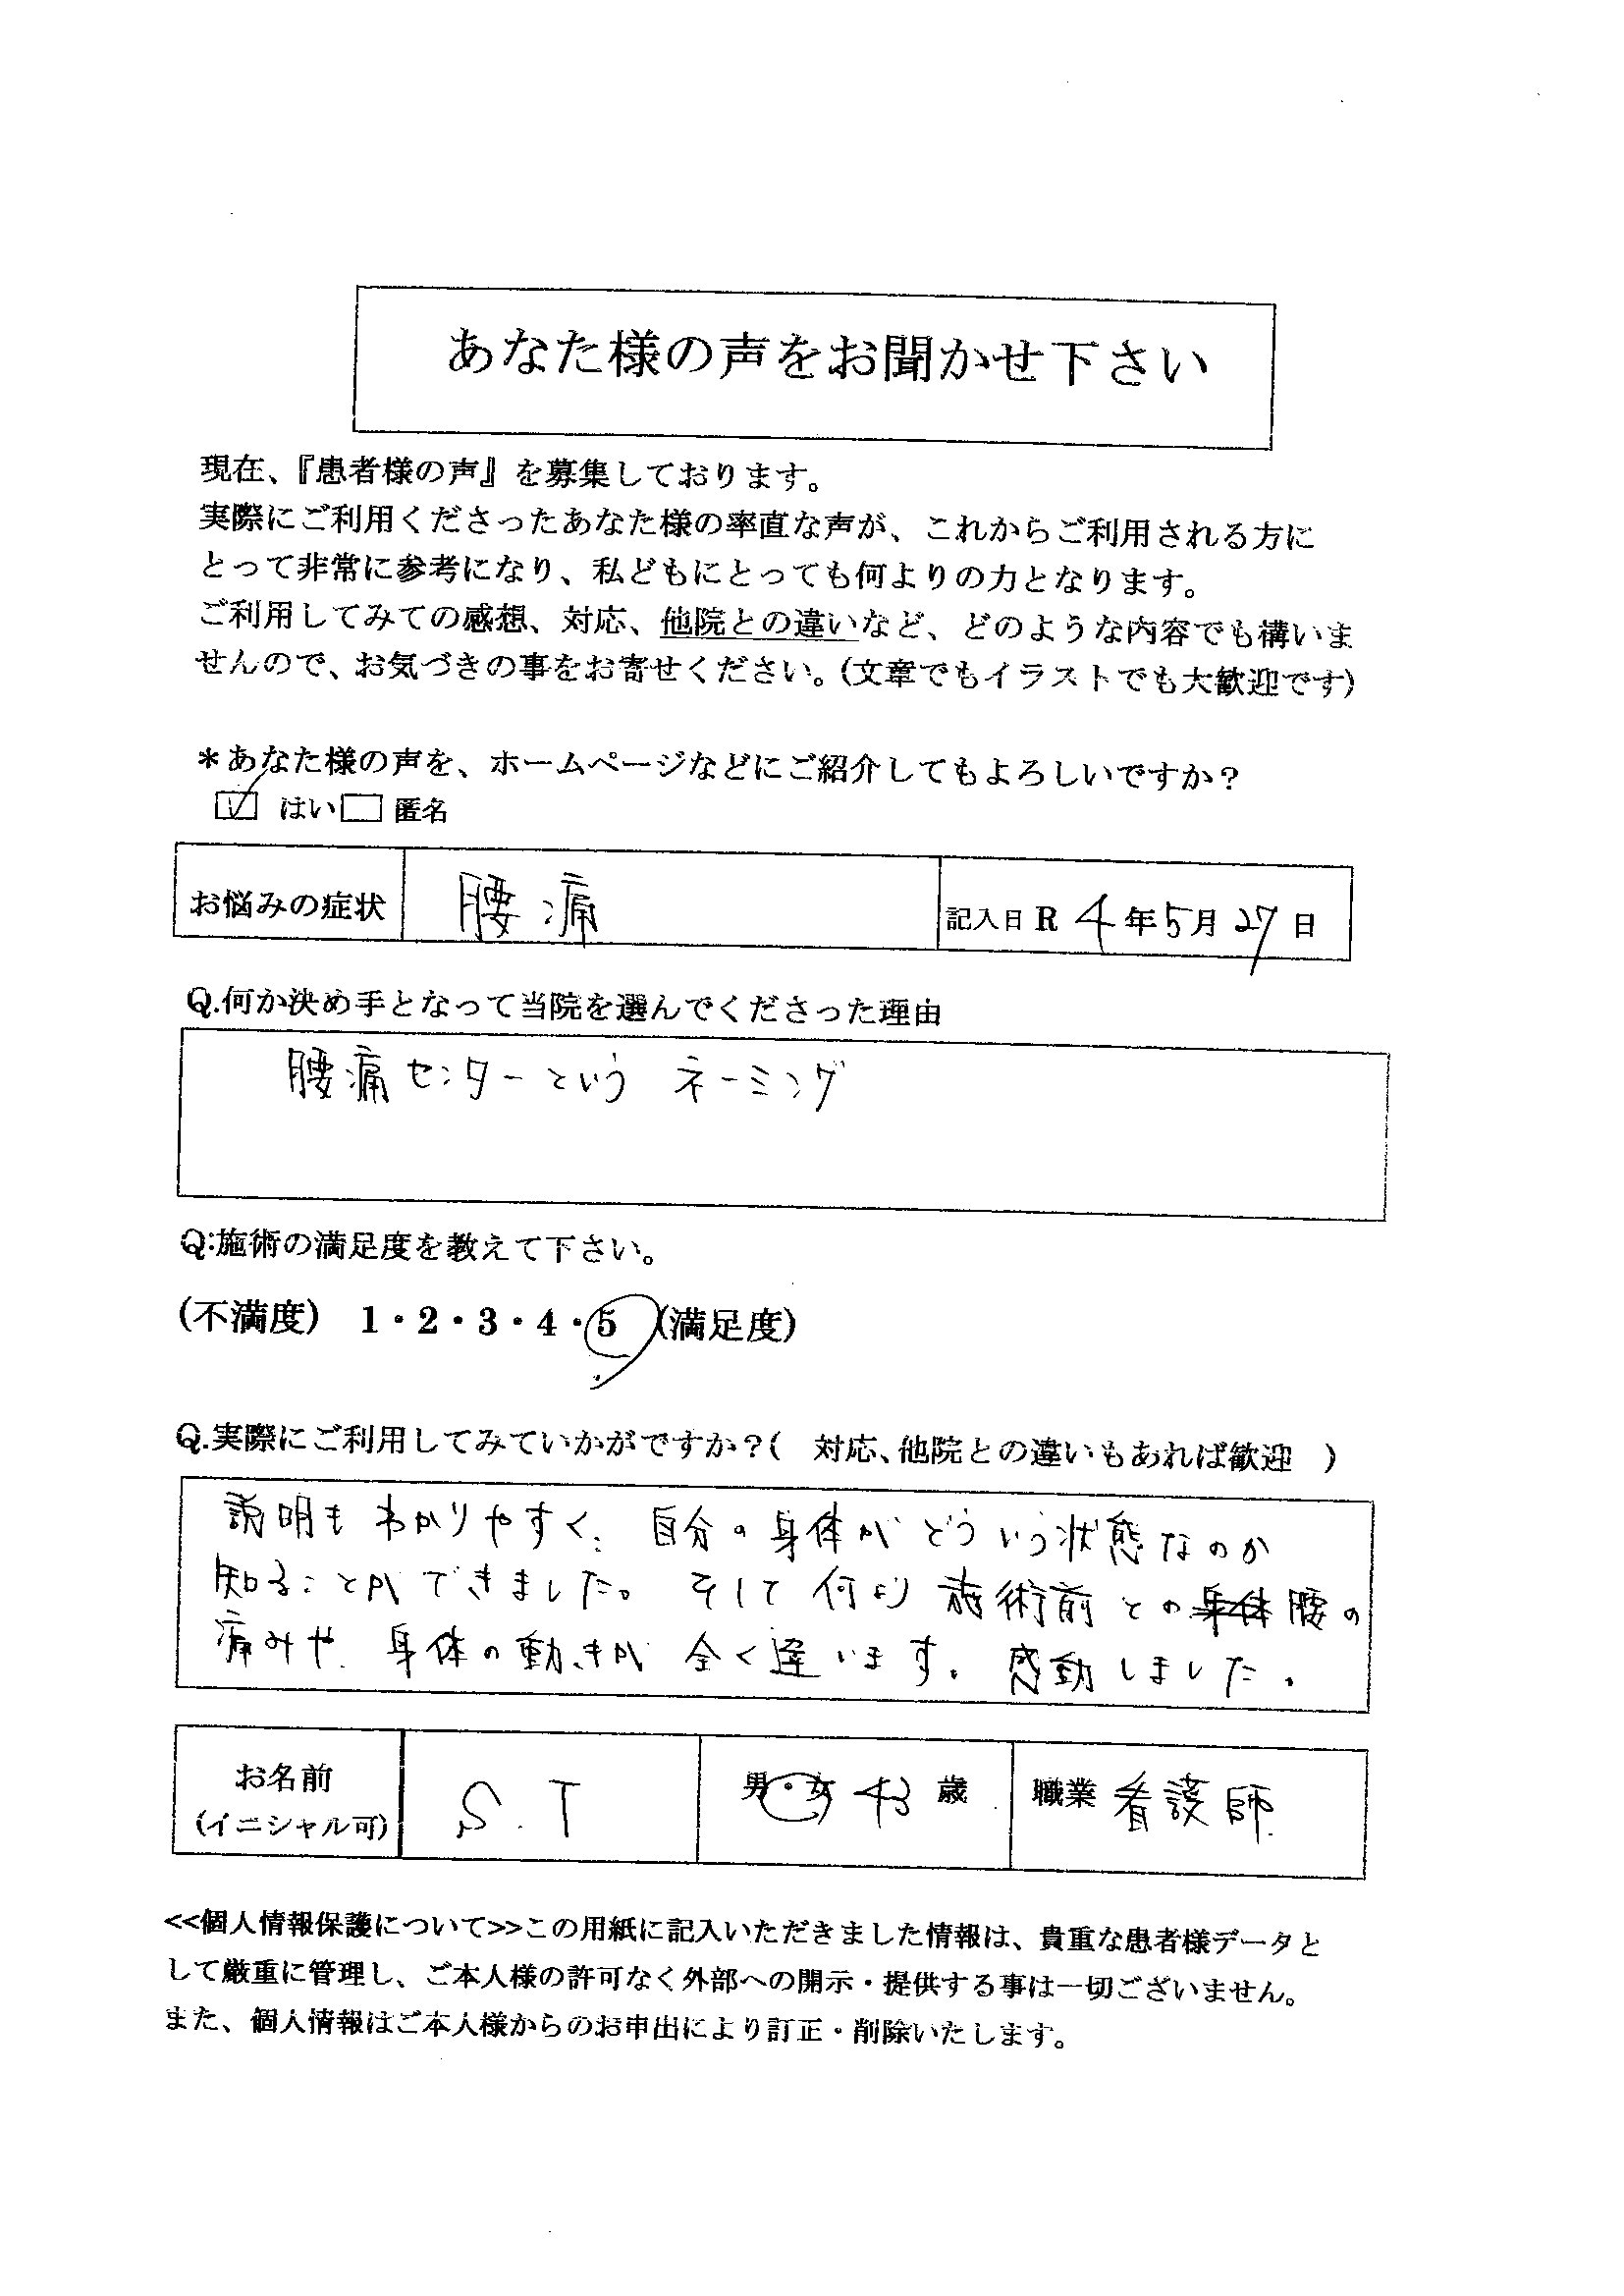 あなた様の声をお聞かせ下さい
現在、『患者様の声』を募集しております。
実際にご利用くださったあなた様の率直な声が、これからご利用される方に
とって非常に参考になり、私どもにとっても何よりの力となります。
ご利用してみての感想、対応、他院との違いなど、どのような内容でも構いま
せんので、お気づきの事をお寄せください。(文章でもイラストでも大歓迎です)
*あなた様の声を、ホームページなどにご紹介してもよろしいですか?
☑ はい □ 匿名
お悩みの症状 腰痛 記入日 R 4 年 5 月 27 日
Q.何か決め手となって当院を選んでくださった理由
腰痛センターという ネーミング
Q:施術の満足度を教えて下さい。
(不満度) 1・2・3・4・5 (満足度)
Q.実際にご利用してみていかがですか?( 対応、他院との違いもあれば歓迎 )
説明もわかりやすく、自分の身体がどういう状態なのか
知ることができました。そして何より施術前との身体腰の
痛みや、身体の動きが全く違います。感動しました。
お名前 S.T 男・女 43 歳 職業 看護師
(イニシャル可)
<<個人情報保護について>>この用紙に記入いただきました情報は、貴重な患者様データと
して厳重に管理し、ご本人様の許可なく外部への開示・提供する事は一切ございません。
また、個人情報はご本人様からのお申出により訂正・削除いたします。